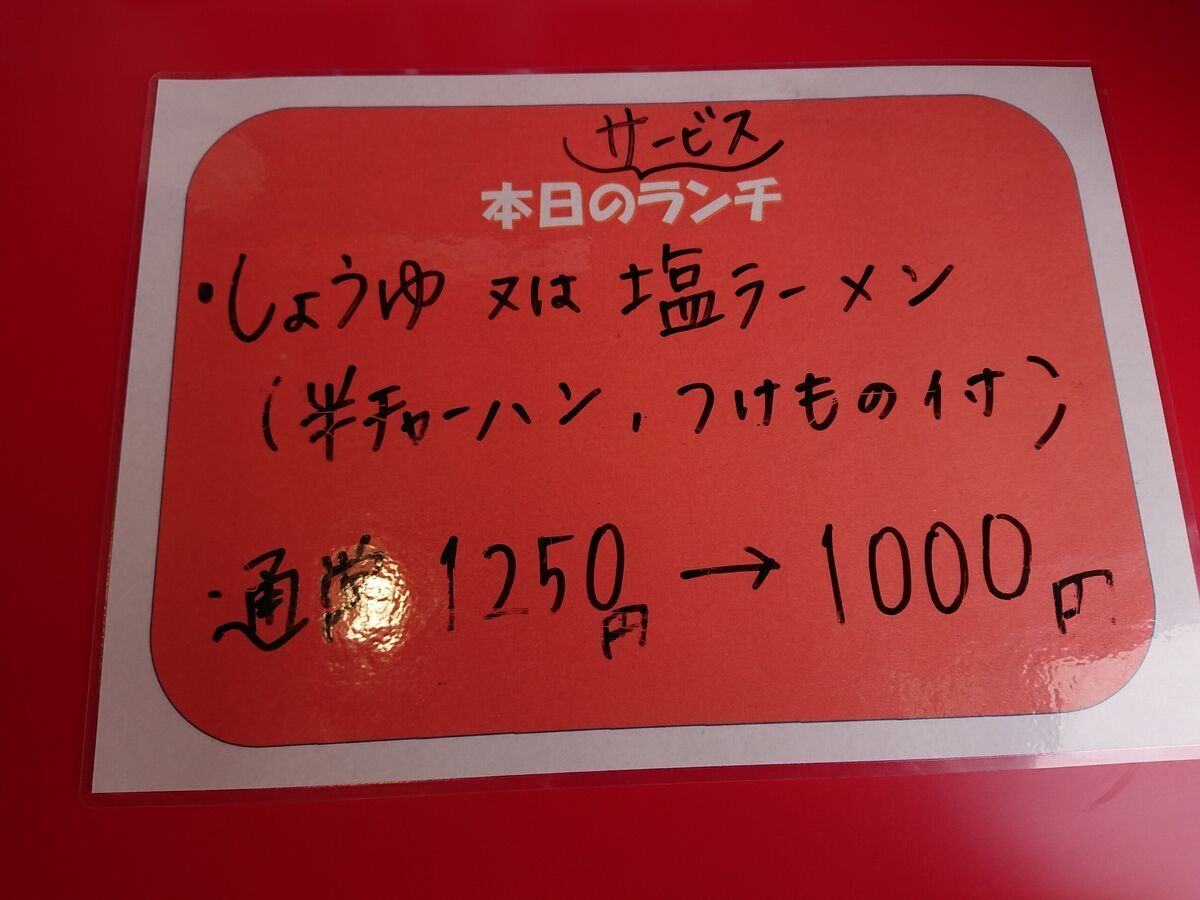 サービス
本日のランチ
・しょうゆ 又は 塩ラーメン
(半チャーハン,つけもの付)
・通常 1250円→1000円